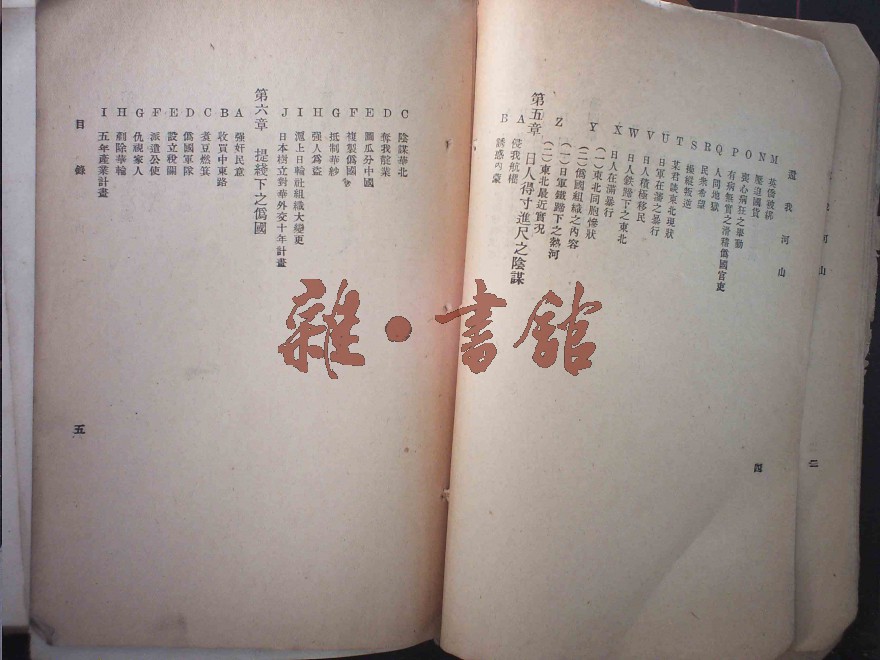 還我河山
M 英僑被綁
N 壓迫國貨
O 喪心病狂之舉動
P 有病無實之滑稽僞國官吏
Q 人間地獄
R 民衆希望
S 操縱叛逆
T 某君談東北現狀
U 日軍在滿之暴行
V 日人積極移民
W 日人鉄蹄下之東北
X 日人在滿暴行
Y (一)東北同胞慘狀
(二)僞國組織之內容
Z (一)日軍鐵蹄下之熱河
(二)東北最近實况
第五章 日人得寸進尺之陰謀
A 侵我航權
B 誘惑內蒙
四
C 陰謀華北
D 奪我鹽業
E 圖瓜分中國
F 複製僞國
G 抵制華紗
H 强人爲盜
I 滬上日輪社組織大變更
J 日本樹立對華外交十年計畫
第六章 提綫下之僞國
A 强奸民意
B 收買中東路
C 煑豆燃箕
D 僞國軍隊
E 設立稅關
F 派遣公使
G 仇視家人
H 剷除華輪
I 五年產業計畫
目錄
五
河山
二
雜·書館